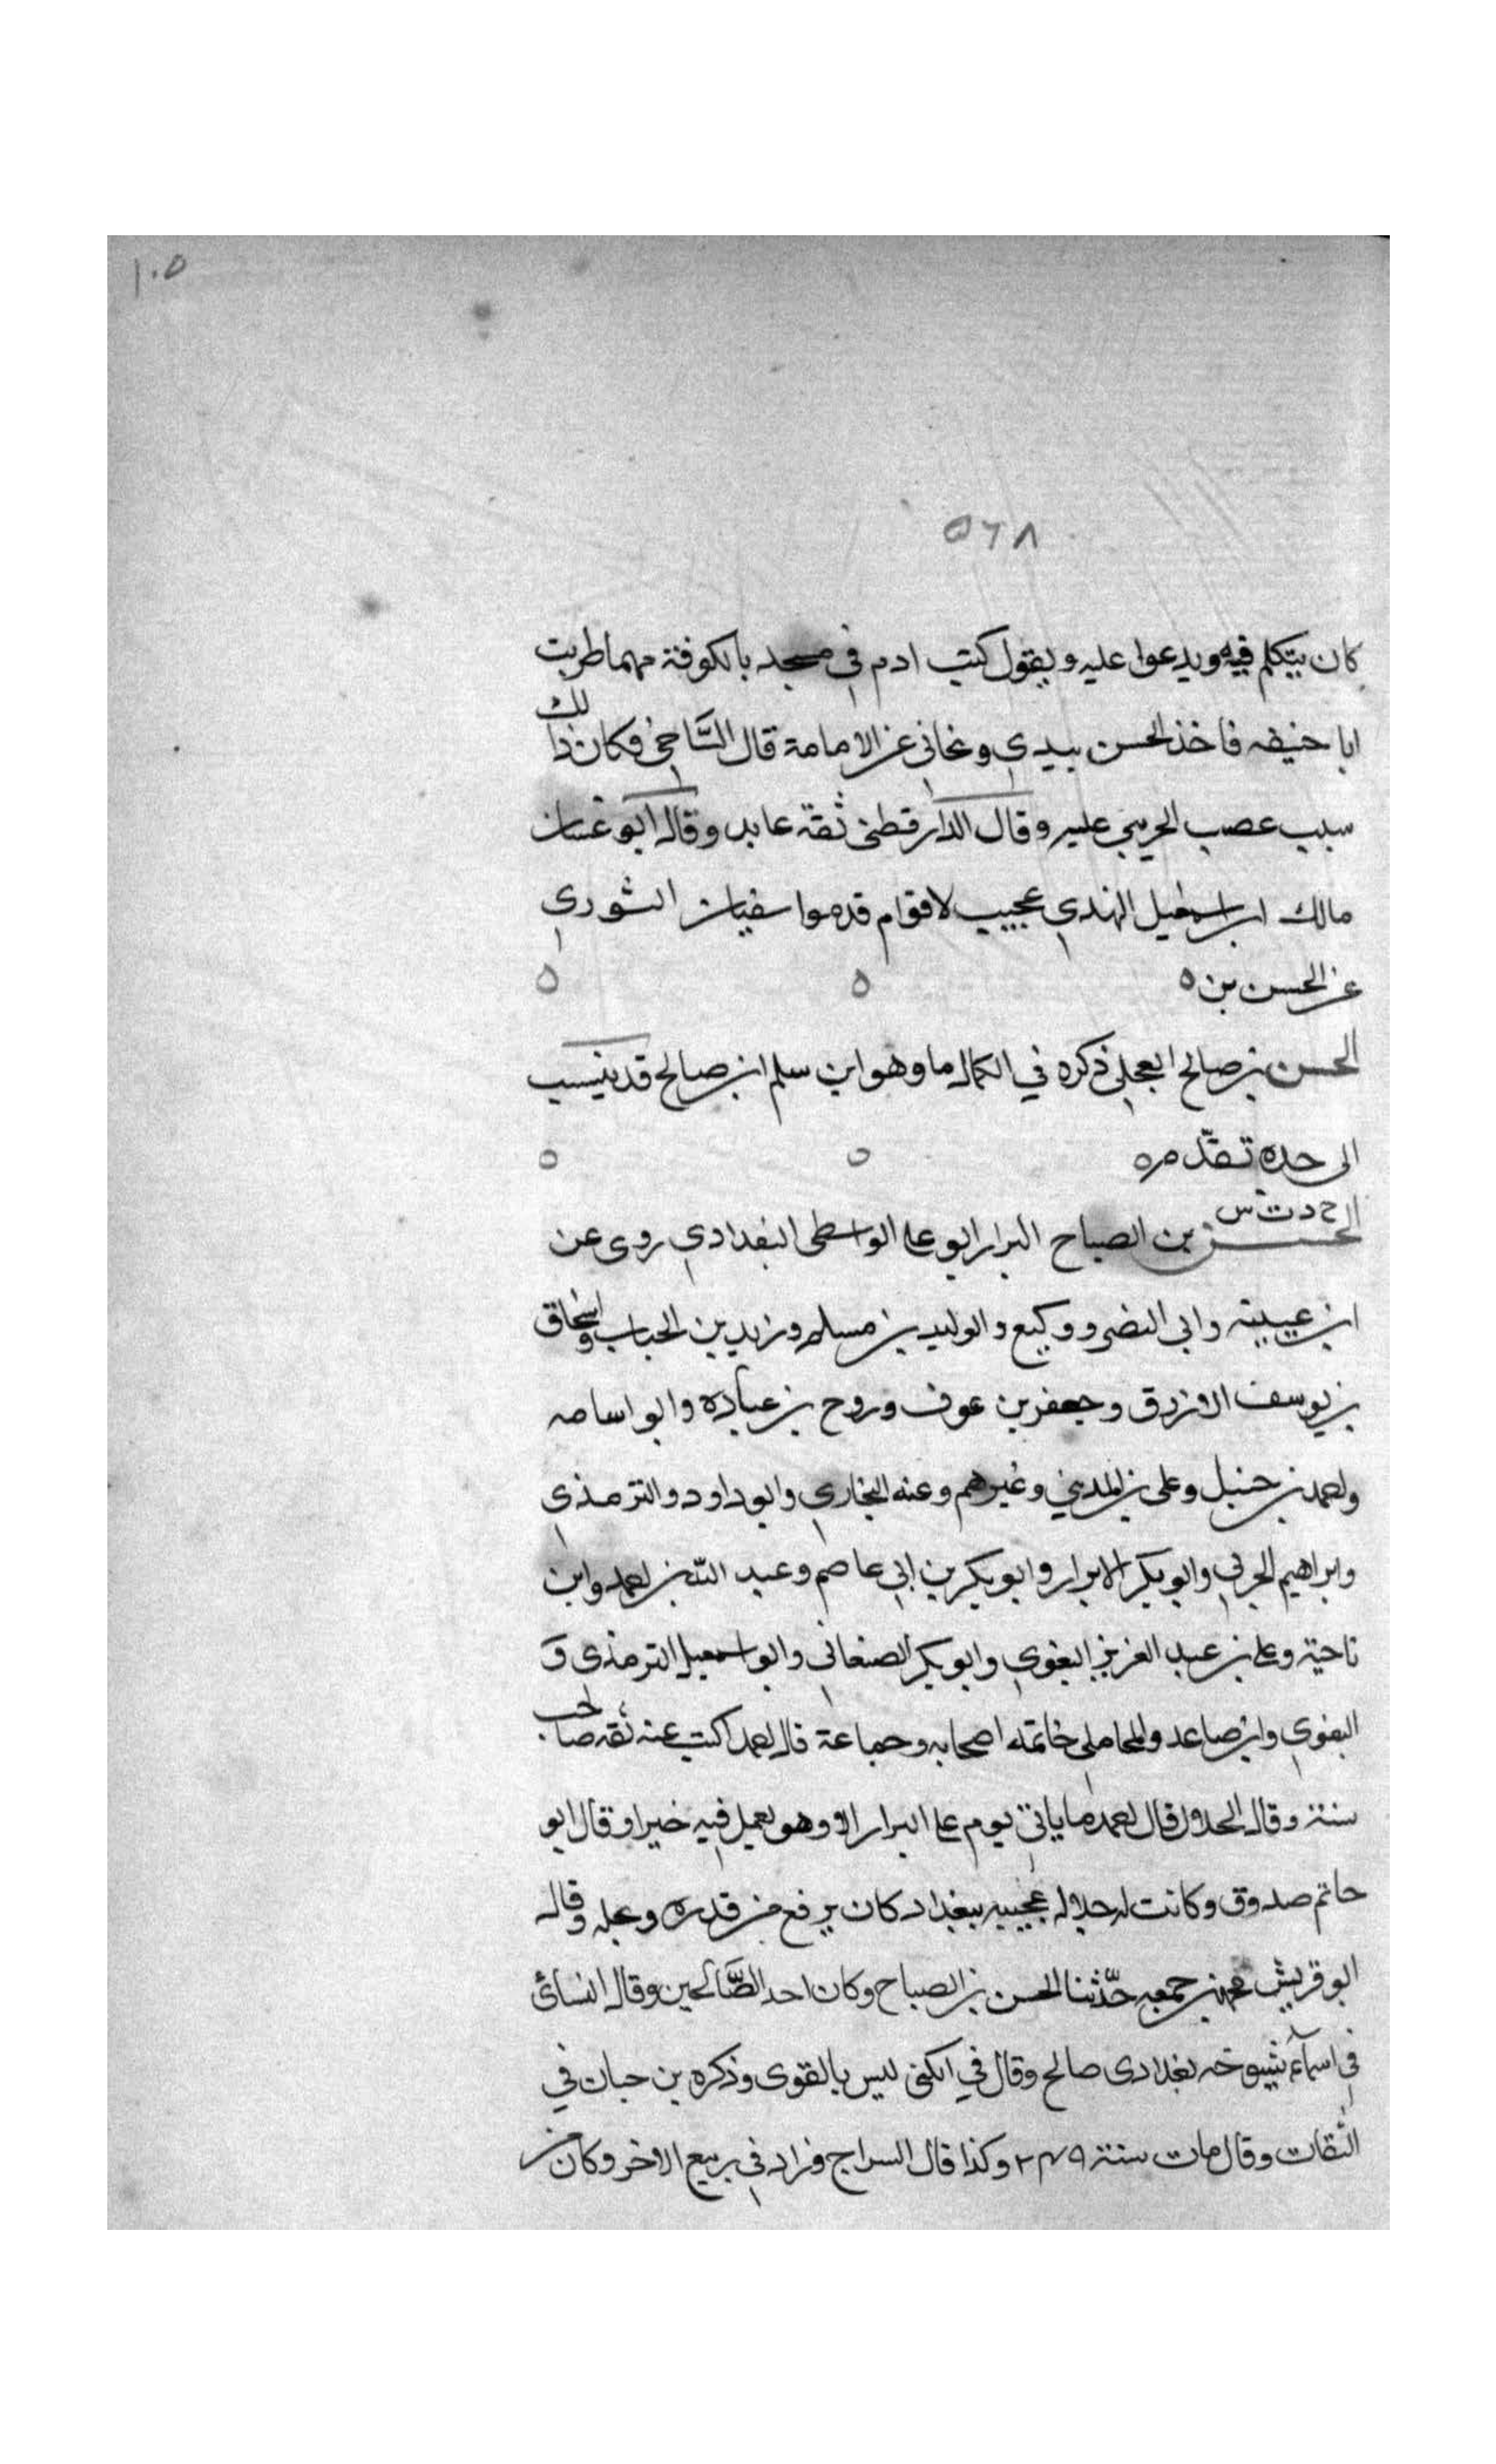 ١٠٥
٥٦٨
كان يتكلم فيه ويدعوا عليه ويقول كتب ادم في مسجد بالكوفة مهما طريت
ابا حنيفه فاخذ الحسن بيدي ونحاني عن الامامة قال الساجي فكان ذالك
سبب عصب الحريبي عليه وقال الدارقطني ثقة عابد وقال ابو غسان
مالك ابن اسمعيل النهدي عجيب لاقوام قدموا سفيان الثوري
عن الحسن بن ٥ ٥ ٥
الحسن بن صالح العجلي ذكره في الكمال ما وهو ابن سلم ابن صالح قد ينسب
الى جده تقدم ٥ ٥ ٥
خ د ت س
الحسن بن الصباح البزار ابو علي الواسطي البغدادي روى عن
ابن عيينه وابي النضر ووكيع والوليد بن مسلم وزيد بن الحباب واسحاق
بن يوسف الازرق وجعفر بن عوف وروح بن عبادة وابو اسامه
واحمد بن حنبل وعلى بن المديني وغيرهم وعنه البخاري وابو داود والترمذي
وابراهيم الحربي وابو بكر الابرار وابو بكر بن ابي عاصم وعبد الله بن احمد وابن
ناحية وعلي بن عبد العزيز البغوي وابو بكر الصنعاني وابو اسمعيل الترمذي و
البغوي وابن صاعد والمحاملي خاتمة اصحابه وجماعة قال احمد اكتب عنه ثقه صاحب
سنة وقال الخلال قال احمد ما ياتي يوم علي البزار الا وهو يعمل فيه خيرا وقال ابو
حاتم صدوق وكانت له جلاله عجيبه ببغداد كان يرفع من قدره ويجله وقال
ابو قريش محمد بن جمعه حدثنا الحسن بن الصباح وكان احد الصالحين وقال النسائي
في اسماء شيوخه بغدادى صالح وقال في الكنى ليس بالقوى وذكره بن حبان في
الثقات وقال مات سنة ٢٤٩ وكذا قال السراج وزاد في ربيع الاخر وكان من